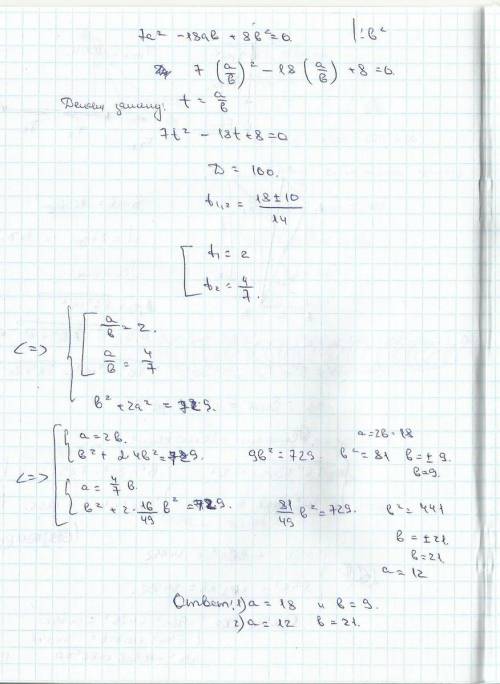 7a² - 18ab + 8b² = 0. |:b²
7 (a/b)² - 18 (a/b) + 8 = 0.
Делаем замену: t = a/b
7t² - 18t + 8 = 0
D = 100.
t₁,₂ = (18 ± 10)/14
[ t₁ = 2
t₂ = 4/7.
<=> { [ a/b = 2.
a/b = 4/7
b² + 2a² = 729.
<=> [ { a = 2b. a = 2b = 18
b² + 2·4b² = 729. 9b² = 729 b² = 81 b = ± 9.
b = 9.
{ a = 4/7 b.
b² + 2·16/49 b² = 729. 81/49 b² = 729. b² = 441
b = ± 21
b = 21
a = 12
Ответ: 1) a = 18 и b = 9.
2) a = 12 b = 21.